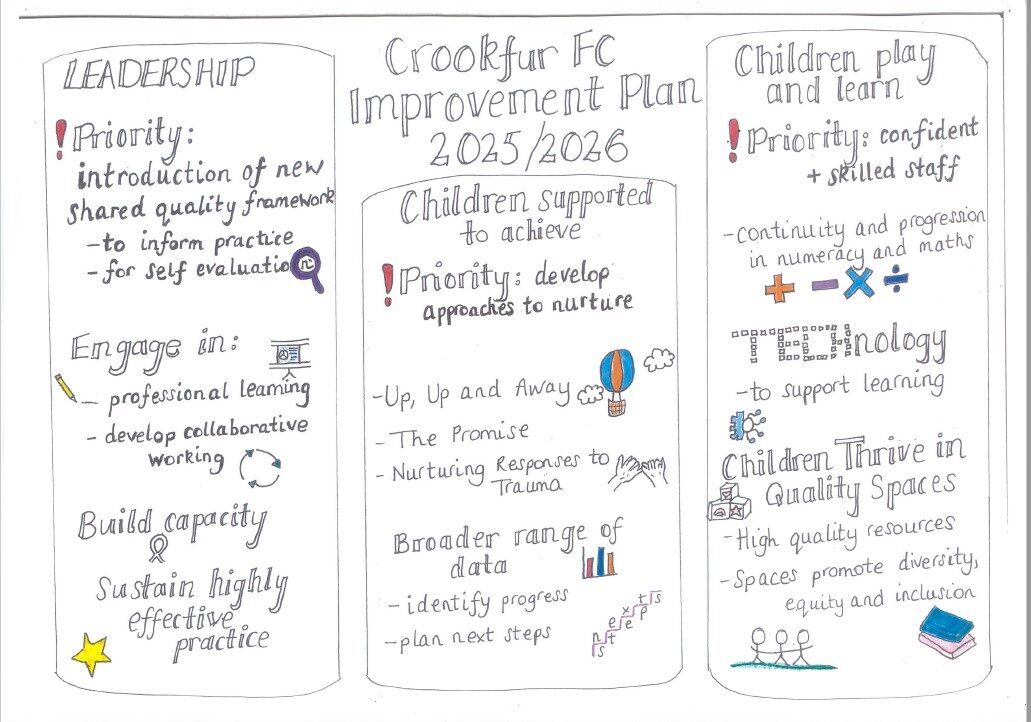 Crookfur FC
Improvement Plan
2025/2026
LEADERSHIP
! Priority:
introduction of new
shared quality framework
- to inform practice
- for self evaluatio
Engage in:
- professional learning
- develop collaborative
working
Build capacity
Sustain highly
effective
practice
Children supported
to achieve
! Priority: develop
approaches to nurture
- Up, Up and Away
- The Promise
- Nurturing Responses to
Trauma
Broader range of
data
- identify progress
- plan next steps
next steps
Children play
and learn
! Priority: confident
+ skilled staff
- Continuity and progression
in numeracy and maths
+ - × ÷
TECHnology
- to support learning
Children Thrive in
Quality Spaces
- High quality resources
- Spaces promote diversity,
equity and inclusion